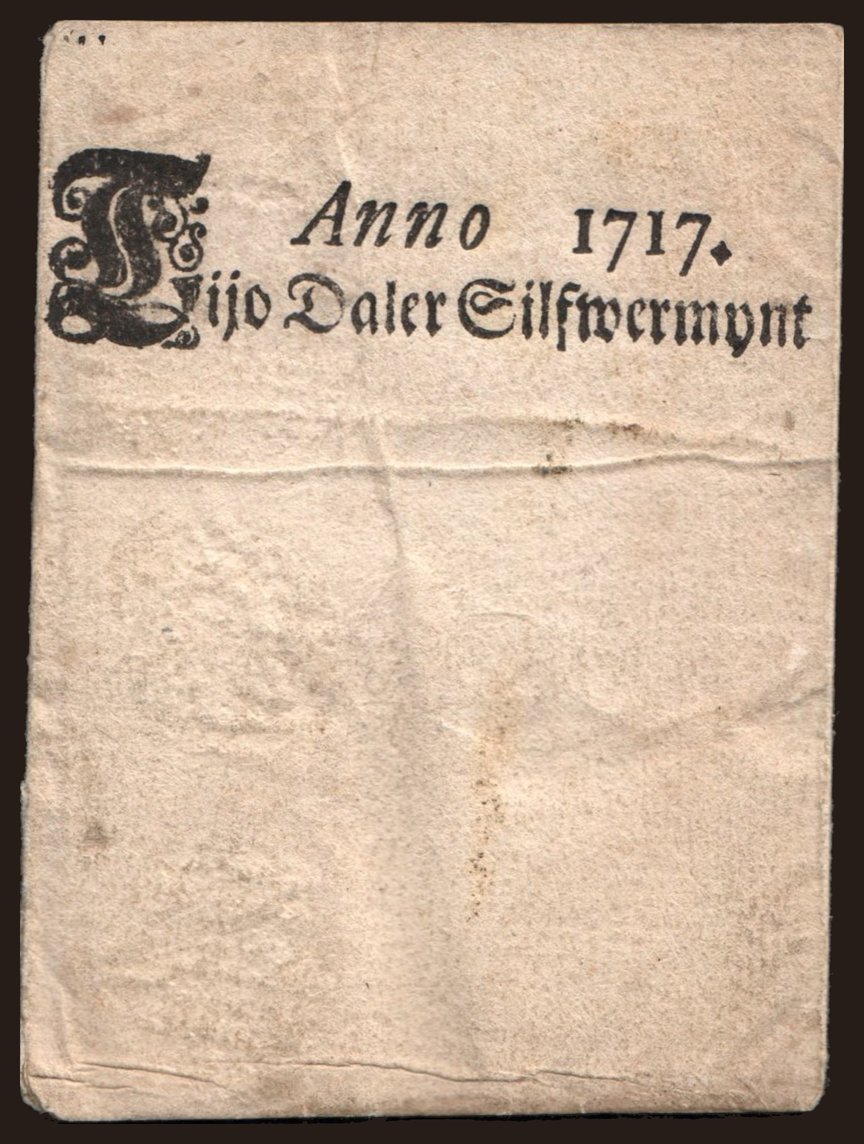 Anno 1717.
Tijo Daler Silfwermynt